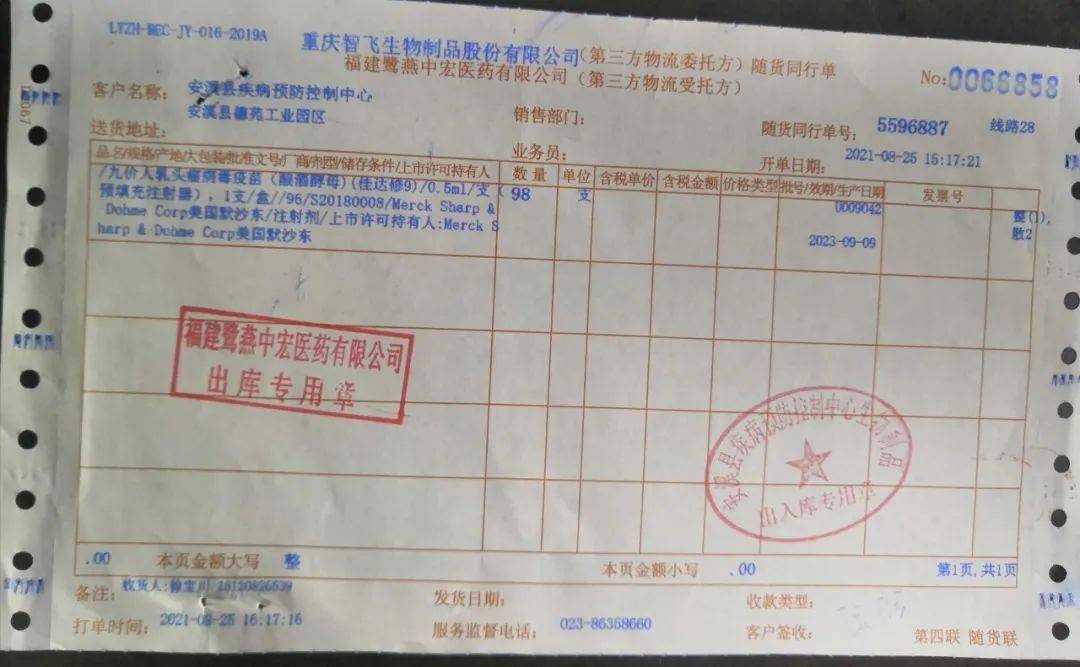 LYZH-REC-JY-016-2019A
重庆智飞生物制品股份有限公司(第三方物流委托方) 随货同行单
福建鹭燕中宏医药有限公司 (第三方物流受托方)
No:0066858
客户名称: 安溪县疾病预防控制中心
安溪县德苑工业园区
送货地址:
销售部门:
业务员:
随货同行单号: 5596887 线路28
开单日期: 2021-08-25 15:17:21
品名/规格/产地/大包装/批准文号/厂商/剂型/储存条件/上市许可持有人 数 量 单位 含税单价 含税金额 价格类型 批号/效期/生产日期 发票号
/九价人乳头瘤病毒疫苗 (酿酒酵母)(佳达修9)/0.5ml/支( 98 支 U009042 整(1),
预填充注射器), 1支/盒//96/S20180008/Merck Sharp & 散2
Dohme Corp美国默沙东/注射剂/上市许可持有人:Merck S 2023-09-09
harp & Dohme Corp美国默沙东
福建鹭燕中宏医药有限公司
出库专用章
安溪县疾病预防控制中心生物制品
出入库专用章
.00 本页金额大写 整 本页金额小写 .00 第1页,共1页
备注: 收货人: 发货日期: 收款类型:
打单时间: 2021-08-25 16:17:16 服务监督电话: 023-86358660 客户签收: 第四联 随货联